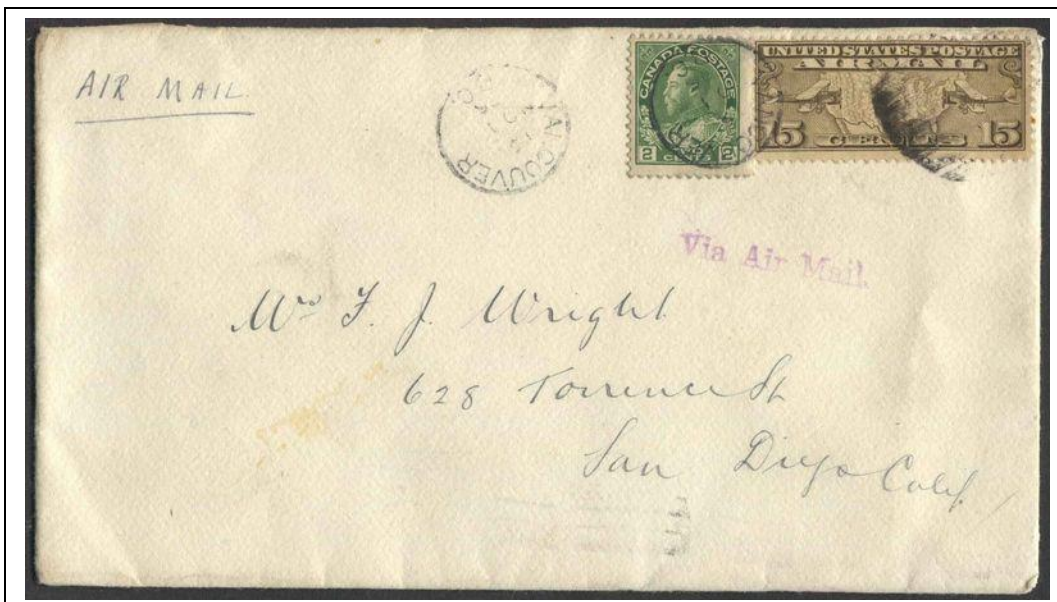 AIR MAIL
VANCOUVER
CANADA POSTAGE
2 CENTS 2
UNITED STATES POSTAGE
AIR MAIL
15 CENTS 15
Via Air Mail
Mrs F. J. Wright
628 Torrence St
San Diego Calif.